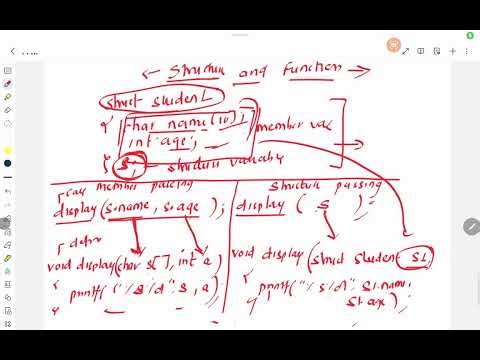 ← Structure and Function →
struct student
{
char name[10];
int age;
member var
} s; → structure variable
call member passing
display (s.name, s.age);
defn
void display(char s[], int a)
{
printf("%s %d" s, a)
}
structure passing
display (s);
void display(struct student s1)
{
printf("%s %d" s1.name,
s1.age);
}